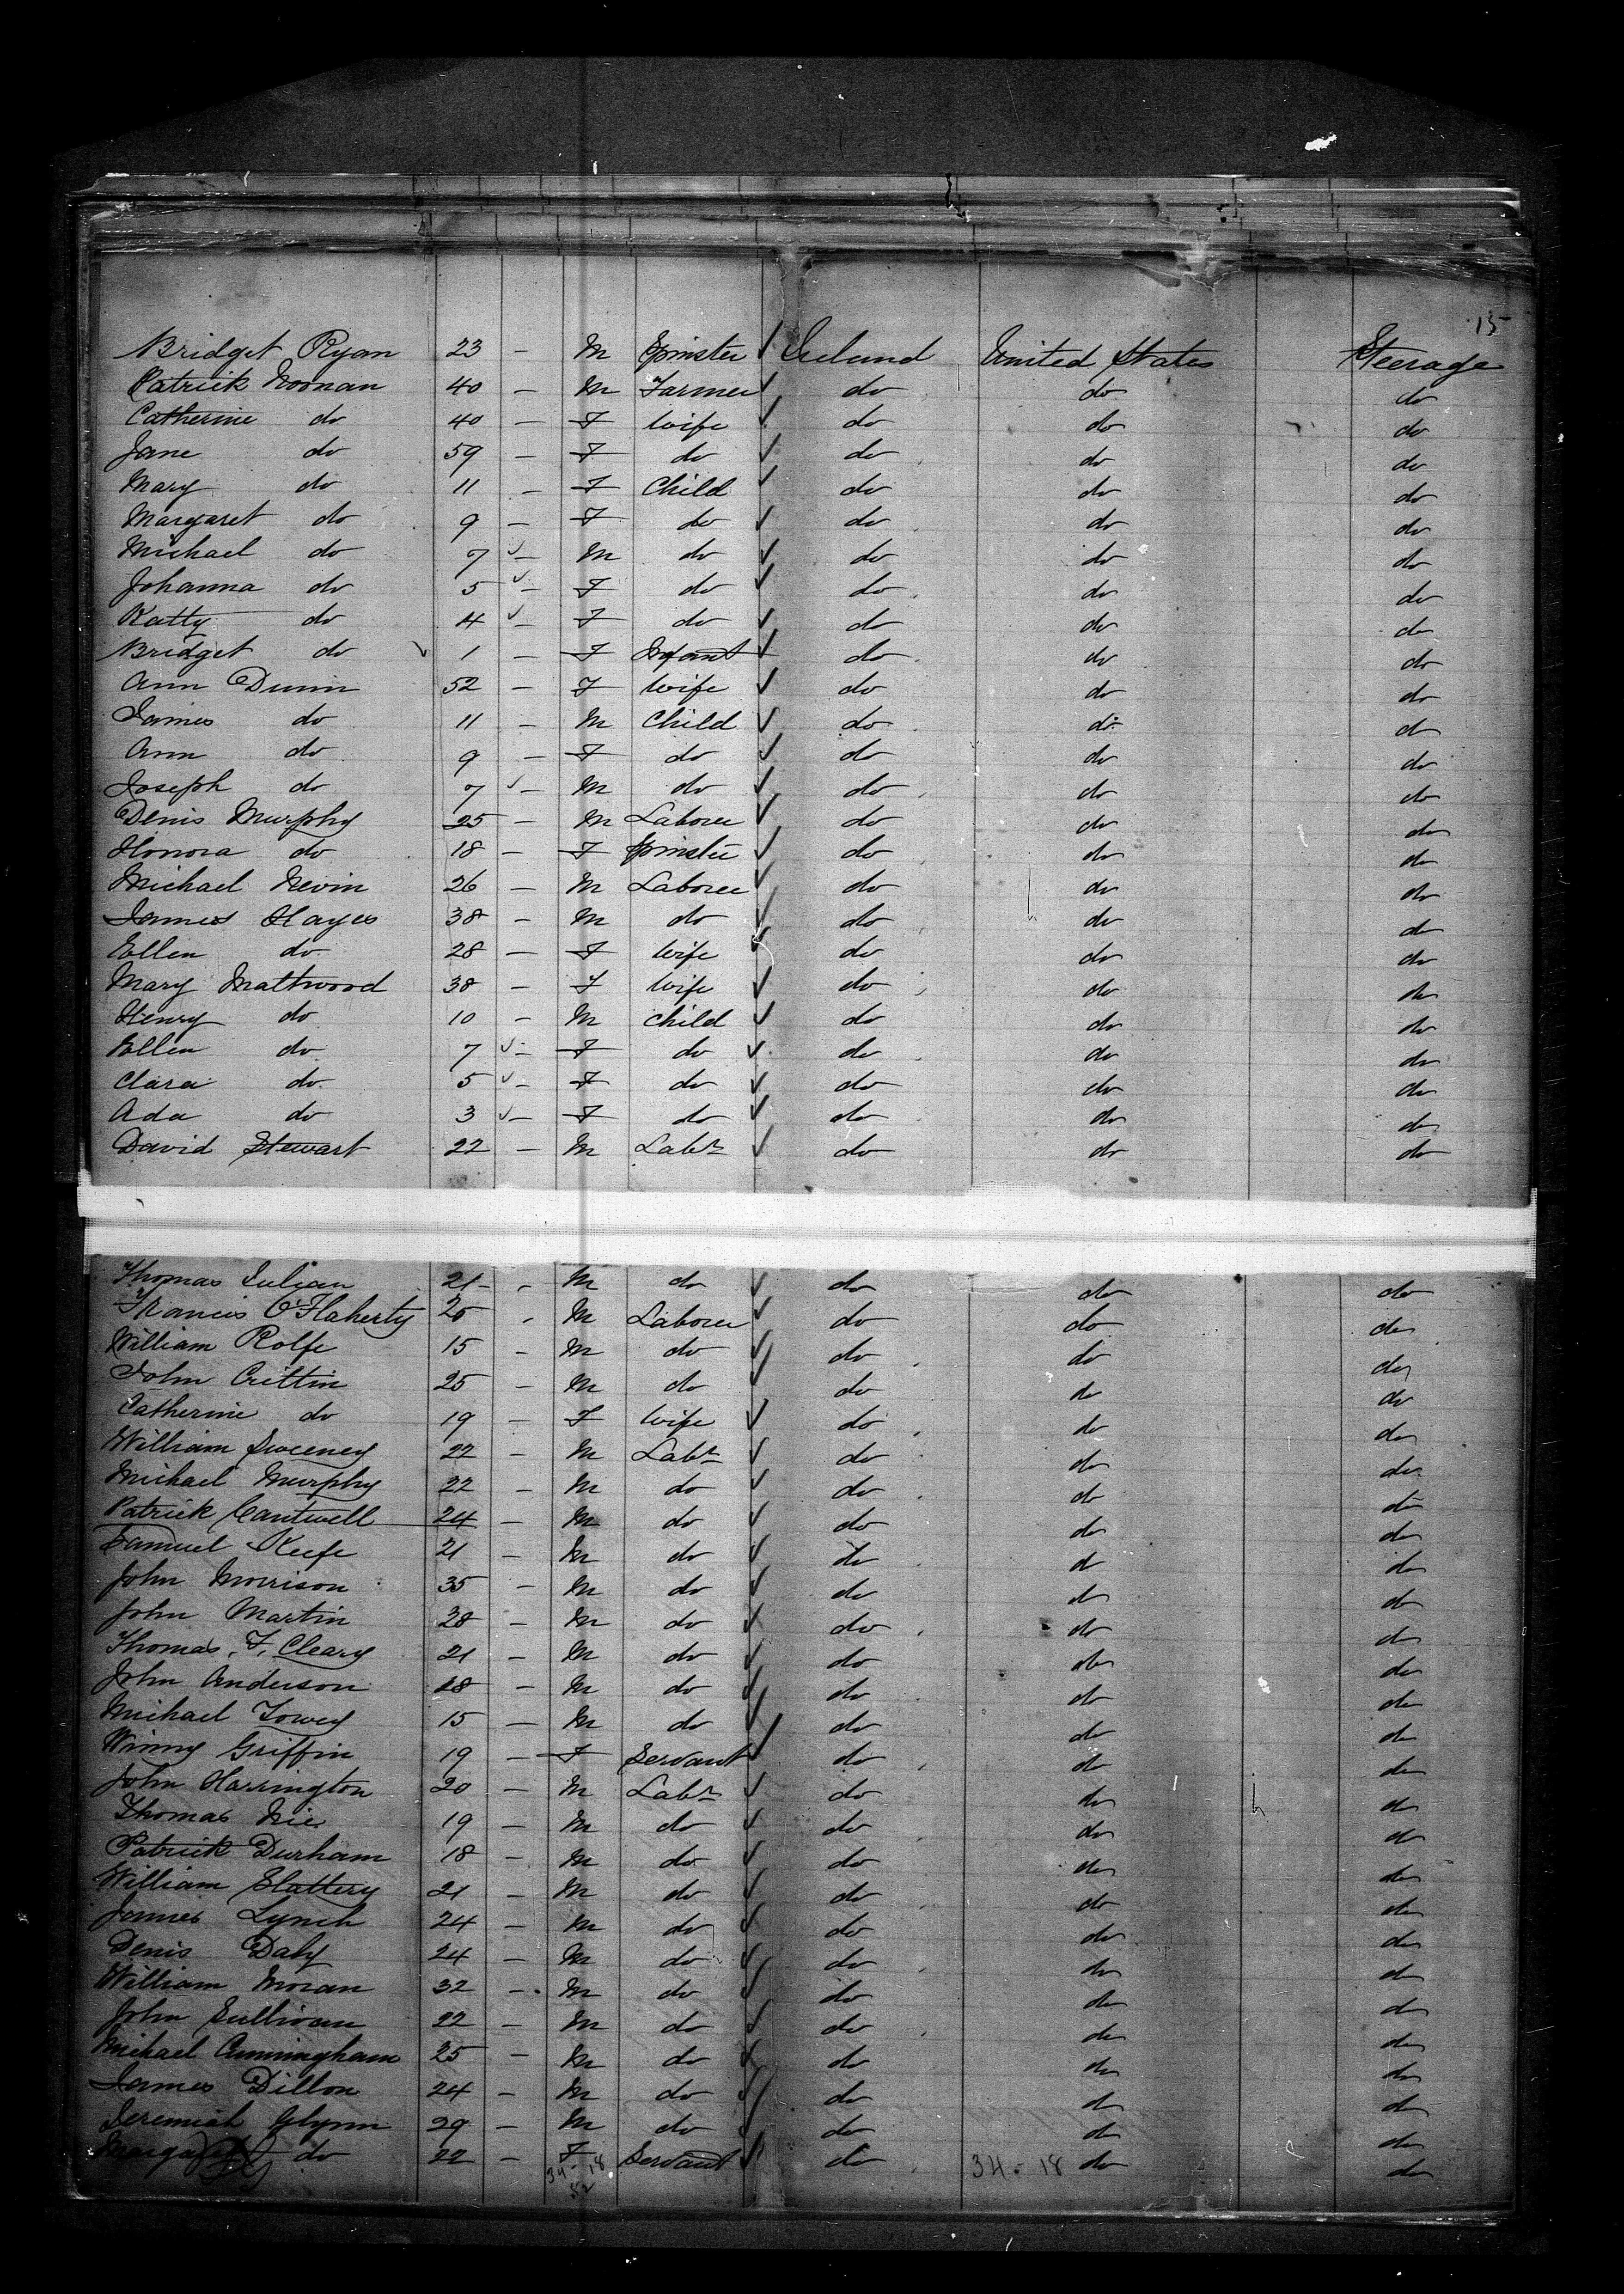 15
Bridget Ryan 23 - M Spinster ✓ Ireland United States Steerage
Patrick Noonan 40 - M Farmer ✓ do do do
Catherine do 40 - F Wife ✓ do do do
Jane do 59 - F do ✓ do do do
Mary do 11 - F Child ✓ do do do
Margaret do 9 - F do ✓ do do do
Michael do 7 ✓ - M do ✓ do do do
Johanna do 5 ✓ - F do ✓ do do do
Katty do 4 ✓ - F do ✓ do do do
Bridget do ✓ 1 - F Infant ✓ do do do
Ann Dunn 52 - F Wife ✓ do do do
James do 11 - M Child ✓ do do do
Ann do 9 - F do ✓ do do do
Joseph do 7 ✓ - M do ✓ do do do
Denis Murphy 25 - M Laborer ✓ do do do
Honora do 18 - F Spinster ✓ do do do
Michael Nevin 26 - M Laborer ✓ do do do
James Hayes 38 - M do ✓ do do do
Ellen do 28 - F Wife ✓ do do do
Mary Maltwood 38 - F Wife ✓ do do do
Henry do 10 - M Child ✓ do do do
Ellen do 7 ✓ - F do ✓ do do do
Clara do 5 ✓ - F do ✓ do do do
Ada do 3 ✓ - F do ✓ do do do
David Stewart 22 - M Labr ✓ do do do
Thomas 21 - M do ✓ do do do
Francis O'Flaherty 20 - M Laborer ✓ do do do
William Rolfe 15 - M do ✓ do do do
John Crittin 25 - M do ✓ do do do
Catherine do 19 - F Wife ✓ do do do
William Sweeney 22 - M Labr ✓ do do do
Michael Murphy 22 - M do ✓ do do do
Patrick Cantwell 24 - M do ✓ do do do
Samuel Keefe 21 - M do ✓ do do do
John Morrison 35 - M do ✓ do do do
John Martin 28 - M do ✓ do do do
Thomas F. Cleary 21 - M do ✓ do do do
John Anderson 28 - M do ✓ do do do
Michael Towey 15 - M do ✓ do do do
Winny Griffin 19 - F Servant ✓ do do do
John Harrington 20 - M Labr ✓ do do do
Thomas 19 - M do ✓ do do do
Patrick Durham 18 - M do ✓ do do do
William Slattery 21 - M do ✓ do do do
James Lynch 24 - M do ✓ do do do
Denis Daly 24 - M do ✓ do do do
William Moran 32 - M do ✓ do do do
John Sullivan 22 - M do ✓ do do do
Michael Cunningham 25 - M do ✓ do do do
James Dillon 24 - M do ✓ do do do
Jeremiah Glynn 29 - M do ✓ do do do
Margaret do 22 - F Servant ✓ do do do
34 - 18 34 - 18
52